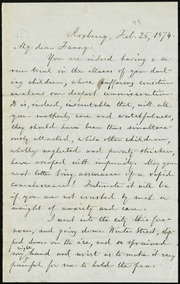 Roxbury, Feb. 25, 1874.
My dear Fanny:
You are indeed having a se-
vere trial in the illness of your dar-
ling children, whose suffering condition
awakens our deepest commiseration.
It is, indeed, inscrutable that, with all
your motherly care and watchfulness,
they should have been thus simultane-
ously attacked, while other children
wholly neglected and poverty-stricken,
have escaped with impunity. May your
next letter bring assurance of a rapid
convalescence! Fortunate it will be
if you are not crushed by such a
weight of anxiety and care.
I went into the city this fore-
noon, and going down Winter Street, slip-
ped down on the ice, and so sprained
my right hand and wrist as to make it very
painful for me to hold the pen.